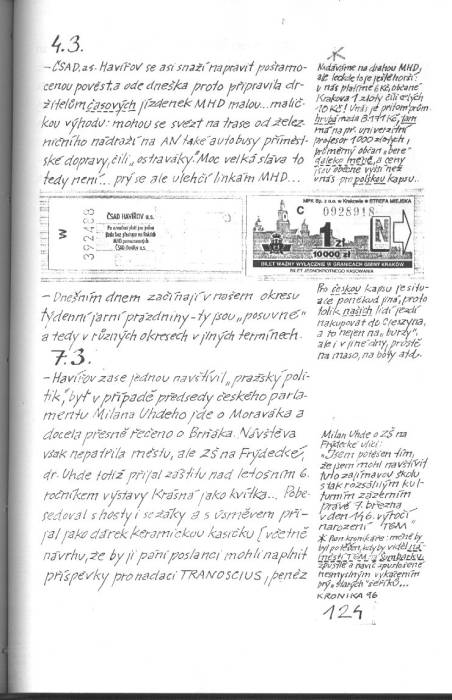 4.3.
– ČSAD, a.s. Havířov se asi snaží napravit pošramo-
cenou pověst, a ode dneška proto připravila dr-
žitelům časových jízdenek MHD malou... malič-
kou výhodu: mohou se svézt na trase od želez-
ničního nádraží na AN také autobusy příměst-
ské dopravy, čili „ostraváky.“ Moc velká sláva to
tedy není... prý se ale ulehčí linkám MHD...
*
Nadáváme na drahou MHD,
ale leckde to je ještě horší:
u nás platíme 6 Kč, občané
Krakova 1 zlotý čili celých
10 Kč! U nás je přitom prům.
hrubá mzda 8.141 Kč, tam
má na př. univerzitní
profesor 1000 zlotých,
průměrný občan „bere“
daleko méně, a ceny
jsou obecně vyšší než
u nás pro polskou kapsu.
W
392488
ČSAD HAVÍŘOV a.s.
MPK Sp. z o.o. w Krakowie STREFA MIEJSKA
C 0928918
1 zł
10000 zł
N
BILET WAŻNY WYŁĄCZNIE W GRANICACH GMINY KRAKÓW
BILET JEDNOKROTNEGO KASOWANIA
– Dnešním dnem začínají v našem okresu
týdenní jarní prázdniny – ty jsou „posuvné“
a tedy v různých okresech v jiných termínech.
Pro českou kapsu je situ-
ace poněkud jiná, proto
tolik našich lidí jezdí
nakupovat do Cieszyna,
a to nejen na „burzy“,
ale i v jiné dny, prostě
na maso, na boty atd.
7.3.
– Havířov zase jednou navštívil „pražský poli-
tik,“ byť v případě předsedy českého parla-
mentu Milana Uhdeho jde o Moraváka a
docela přesně řečeno o Brňáka. Návštěva
však nepatřila městu, ale ZŠ na Frýdecké,
dr. Uhde totiž přijal záštitu nad letošním 6.
ročníkem výstavy Krásná jako kvítka... Pobe-
sedoval s hosty i se žáky a s úsměvem při-
jal jako dárek keramickou kasičku [včetně
návrhu, že by jí páni poslanci mohli naplnit
příspěvky pro nadaci TRANOSCIUS, peněz
Milan Uhde o ZŠ na
Frýdecké ulici:
„Jsem potěšen tím,
že jsem mohl navštívit
tuto zajímavou školu
s tak rozsáhlým kul-
turním zázemím
právě 7. března
v den 146. výročí
narození TGM“
* Pan kronikáře: méně by
byl potěšen, kdyby viděl ná-
městí TGM s Šimbarkou
zpustlé a navíc zpustošené
nesmyslným vykácením
prý „starých“ šeříků...
KRONIKA 96
124